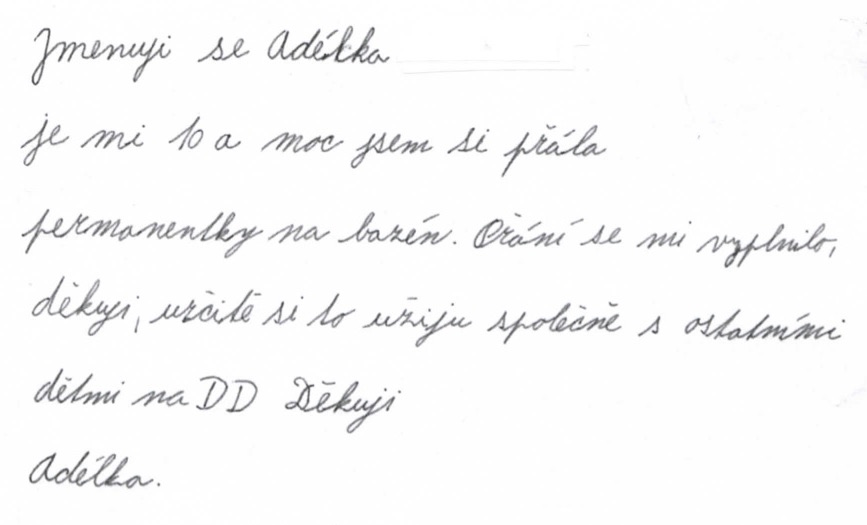 Jmenuji se Adélka
je mi 10 a moc jsem si přála
permanentky na bazén. Přání se mi vyplnilo,
děkuji, určitě si to užiju společně s ostatními
dětmi na DD Děkuji
Adélka.